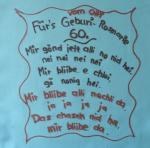 vom Cilly
Für's Geburi- Rosmarie
60.
Mir gönd jetz alli no nid hei.
nei nei nei nei
Mir bliibe e chli
gö nonig hei.
Mir bliibe alli nachli da
ja ja ja ja
Das chasch nid ha,
mir bliibe da.